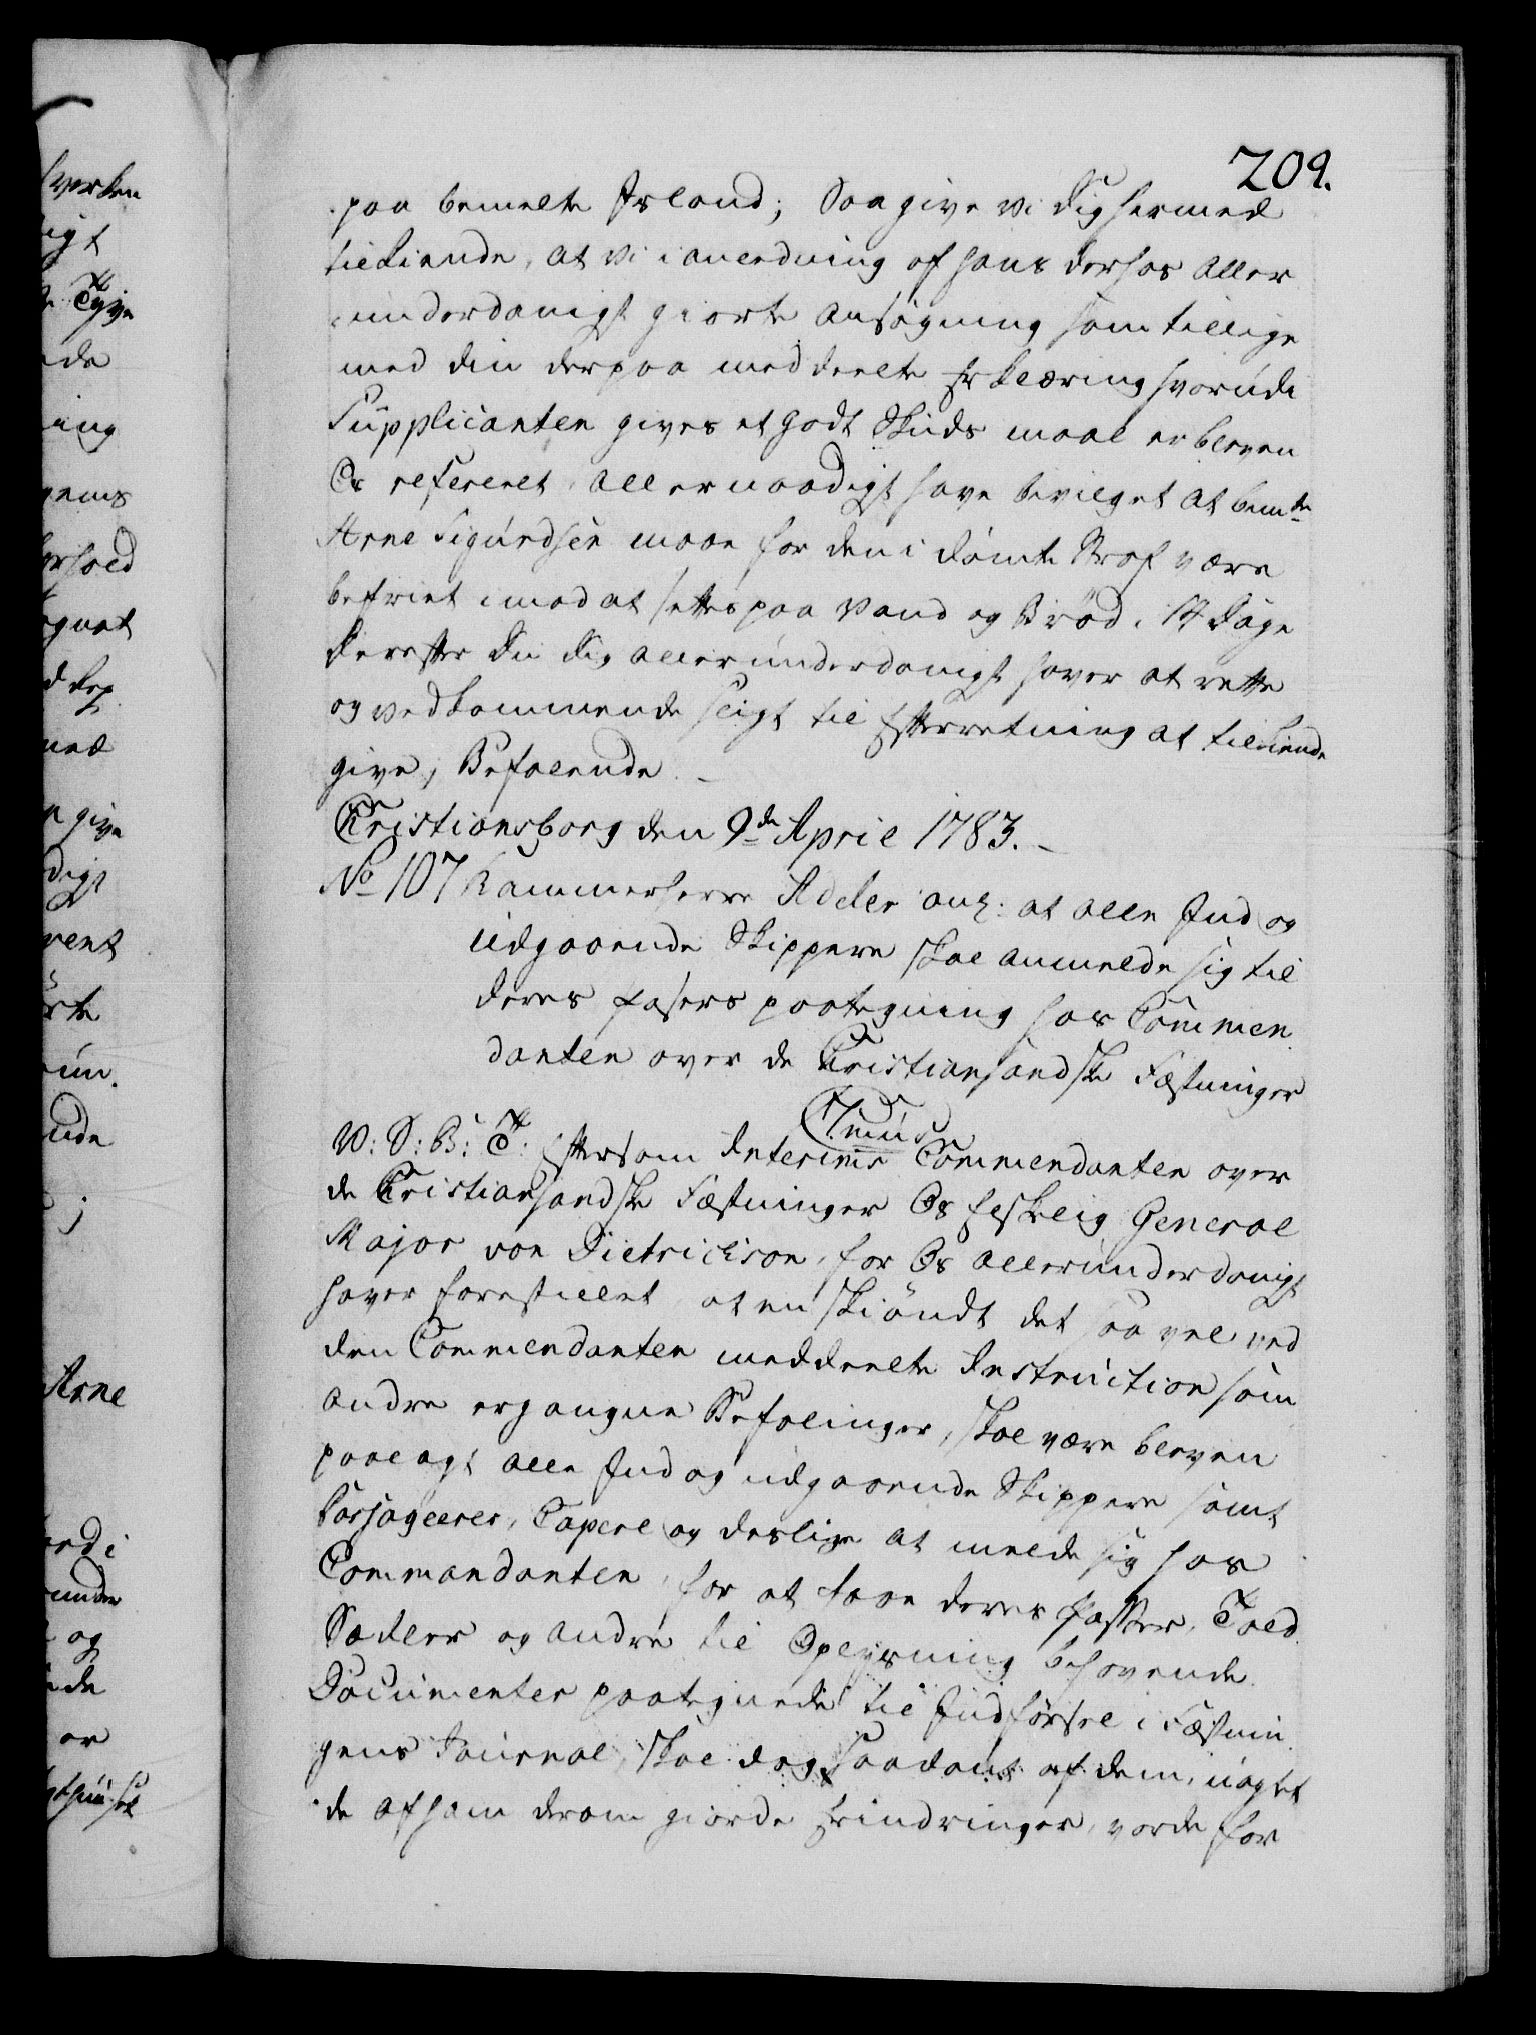 209.
paa bemelte Jsland; Saa give vi dig hermed
tilkiende, at vi i anledning af hans derhos aller
underdanigst giorte Ansøgning som tillige
med din derpaa meddeelte Erklæring hvorudi
Supplicanten gives et godt Skudsmaal er bleven
Os refereret, allernaadigst have bevilget at bemte
Arne Sigurdsen maae for den idømte Straf være
befriet imod at settes paa Vand og Brød i 14 dage
derefter du dig allerunderdanigst haver at rette
og vedkommende sligt til Efterretning at tilkiende
give, Befalende.
Christiansborg den 9de April 1783.
No 107 Kammerherre Adeler ang: at alle Ind og
udgaaende Skippere skal anmelde sig til
deres Passers paategning hos Commen
danten over de Christiansandske Fæstninger
V: S: B: T: Eftersom Interims Commendanten over
de Christiansandske Fæstninger Os Elskelig General
Major von Dietrichson, for Os allerunderdanigst
haver forestillet, at enskiøndt det saa vel ved
den Commendanten meddeelte Instruction som
andre ergangne Befalinger, skal være bleven
paalagt alle Ind og udgaaende Skippere samt
Passageerer, Capere og deslige at melde sig hos
Commandanten, for at faae deres Passer, Told
Sedler og andre til Oplysning behøvende
Documenter paategnede til Indførsel i Fæstnin
gens Journal, skal dog saadant af dem, uagtet
de af ham derom giorde Erindringer, vorde for